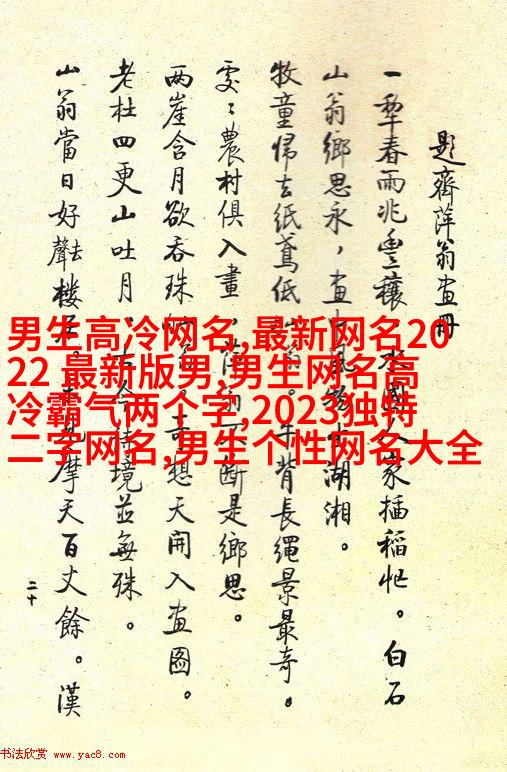 題齊萍翁畫冊
一犂春雨兆豐穰 水國人家插稻忙。白石
山翁鄉思永，畫中風物 湖湘。
牧童歸去紙鳶低 牛背長繩景最奇。
處〻農村俱入畫，萍翁不斷是鄉思。
两崖含月欲吞珠 奇想天開入畫圖。
老杜四更山吐月，古今詩境並無殊。
山翁當日好去聲樓居。 摩天百丈餘。漢
二十
男生高冷网名,最新网名20
22 最新版男,男生网名高
冷霸气两个字,2023独特
二字网名,男生个性网名大全
书法欣赏 www.yac8.com